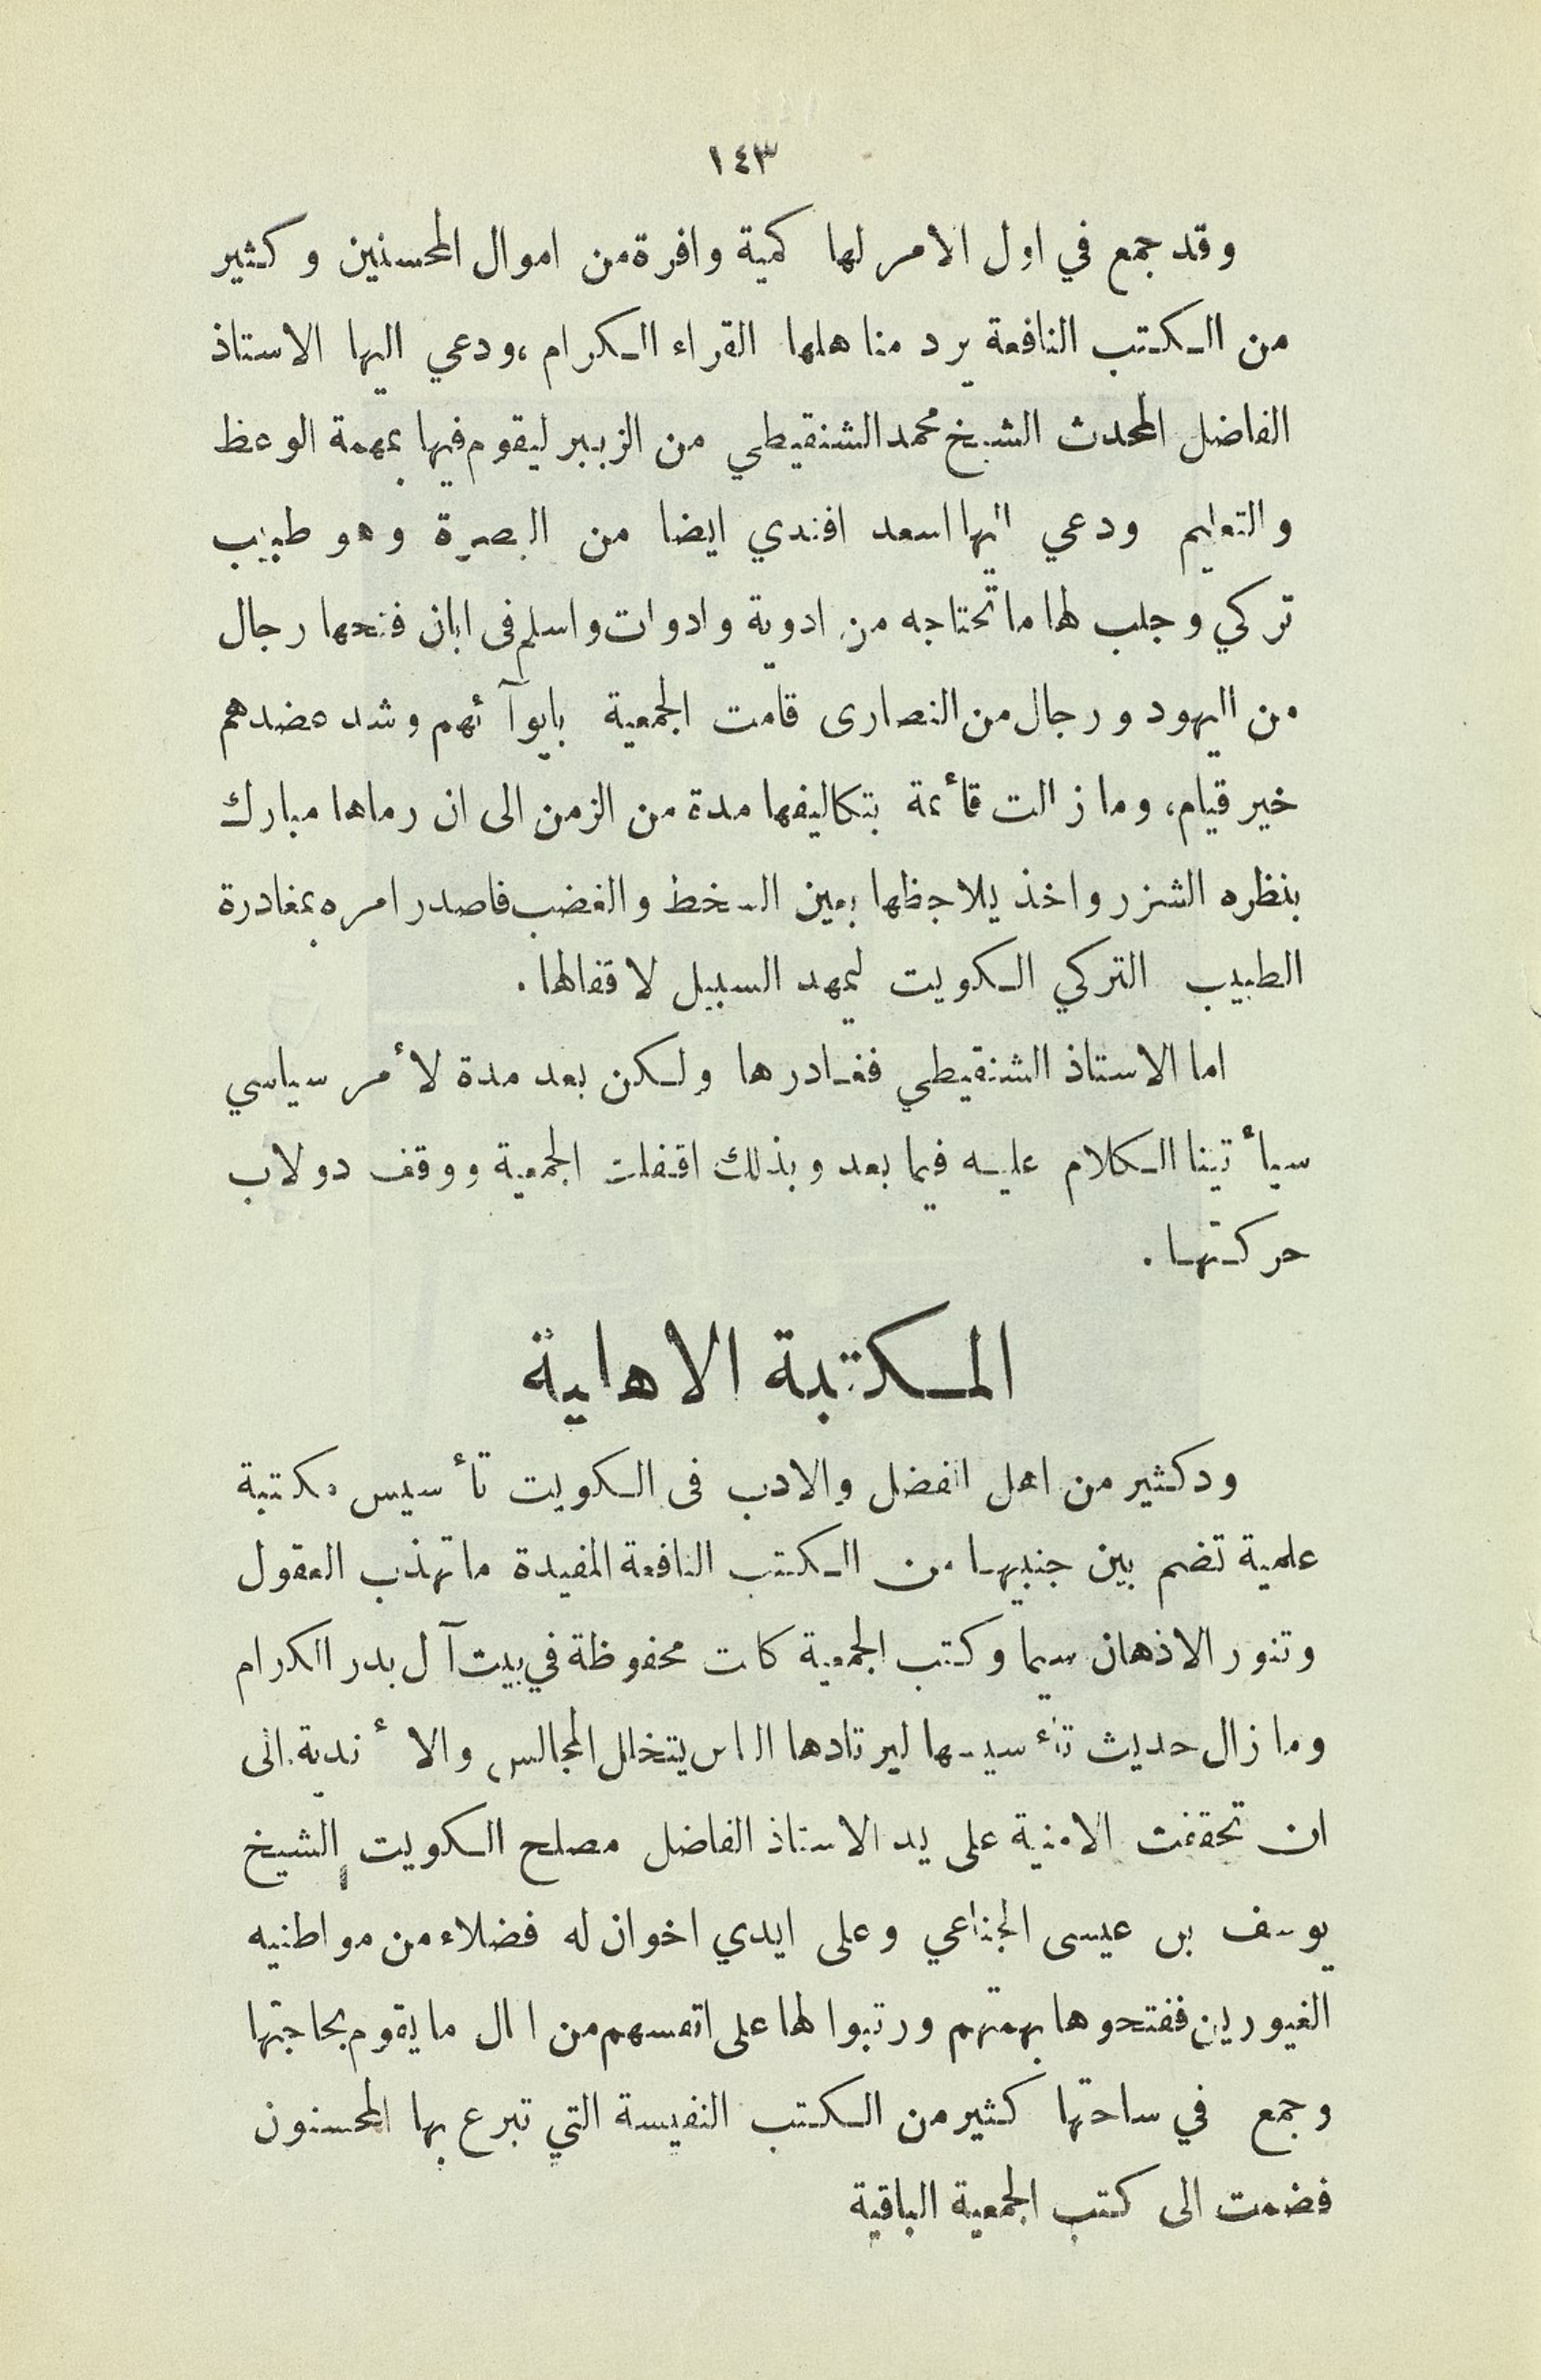 ١٤٣
وقد جمع في اول الامر لها كمية وافرة من اموال المحسنين وكثير
من الكتب النافعة يرد مناهلها القراء الكرام، ودعي اليها الاستاذ
الفاضل المحدث الشيخ محمد الشنقيطي من الزبير ليقوم فيها بمهمة الوعظ
والتعليم ودعي اليها اسعد افندي ايضا من البصرة وهو طبيب
تركي وجلب لها ما تحتاجه من ادوية وادوات واسلم فى ابان فتحها رجال
من اليهود ورجال من النصارى قامت الجمعية بايوآئهم وشد عضدهم
خير قيام، وما زالت قأئمة بتكاليفها مدة من الزمن الى ان رماها مبارك
بنظره الشزر واخذ يلاحظها بعين السخط والغضب فاصدر امره بمغادرة
الطبيب التركي الكويت ليمهد السبيل لاقفالها.
اما الاستاذ الشنقيطي فغادرها ولكن بعد مدة لأمر سياسي
سيأتينا الكلام عليه فيما بعد وبذلك اقفلت الجمعية ووقف دولاب
حركتها.
المكتبة الاهلية
ود كثير من اهل الفضل والادب فى الكويت تأسيس مكتبة
علمية تضم بين جنبيها من الكتب النافعة المفيدة ما تهذب العقول
وتنور الاذهان سيما وكتب الجمعية كانت محفوظة في بيت آل بدر الكرام
وما زال حديث تأسيسها ليرتادها الناس يتخلل المجالس والأندية الى
ان تحققت الامنية على يد الاستاذ الفاضل مصلح الكويت الشيخ
يوسف بن عيسى الجناعي وعلى ايدي اخوان له فضلاء من مواطنيه
الغيورين ففتحوها بهمتهم ورتبوا لها على انفسهم من المال ما يقوم بحاجتها
وجمع في ساحتها كثير من الكتب النفيسة التي تبرع بها المحسنون
فضمت الى كتب الجمعية الباقية